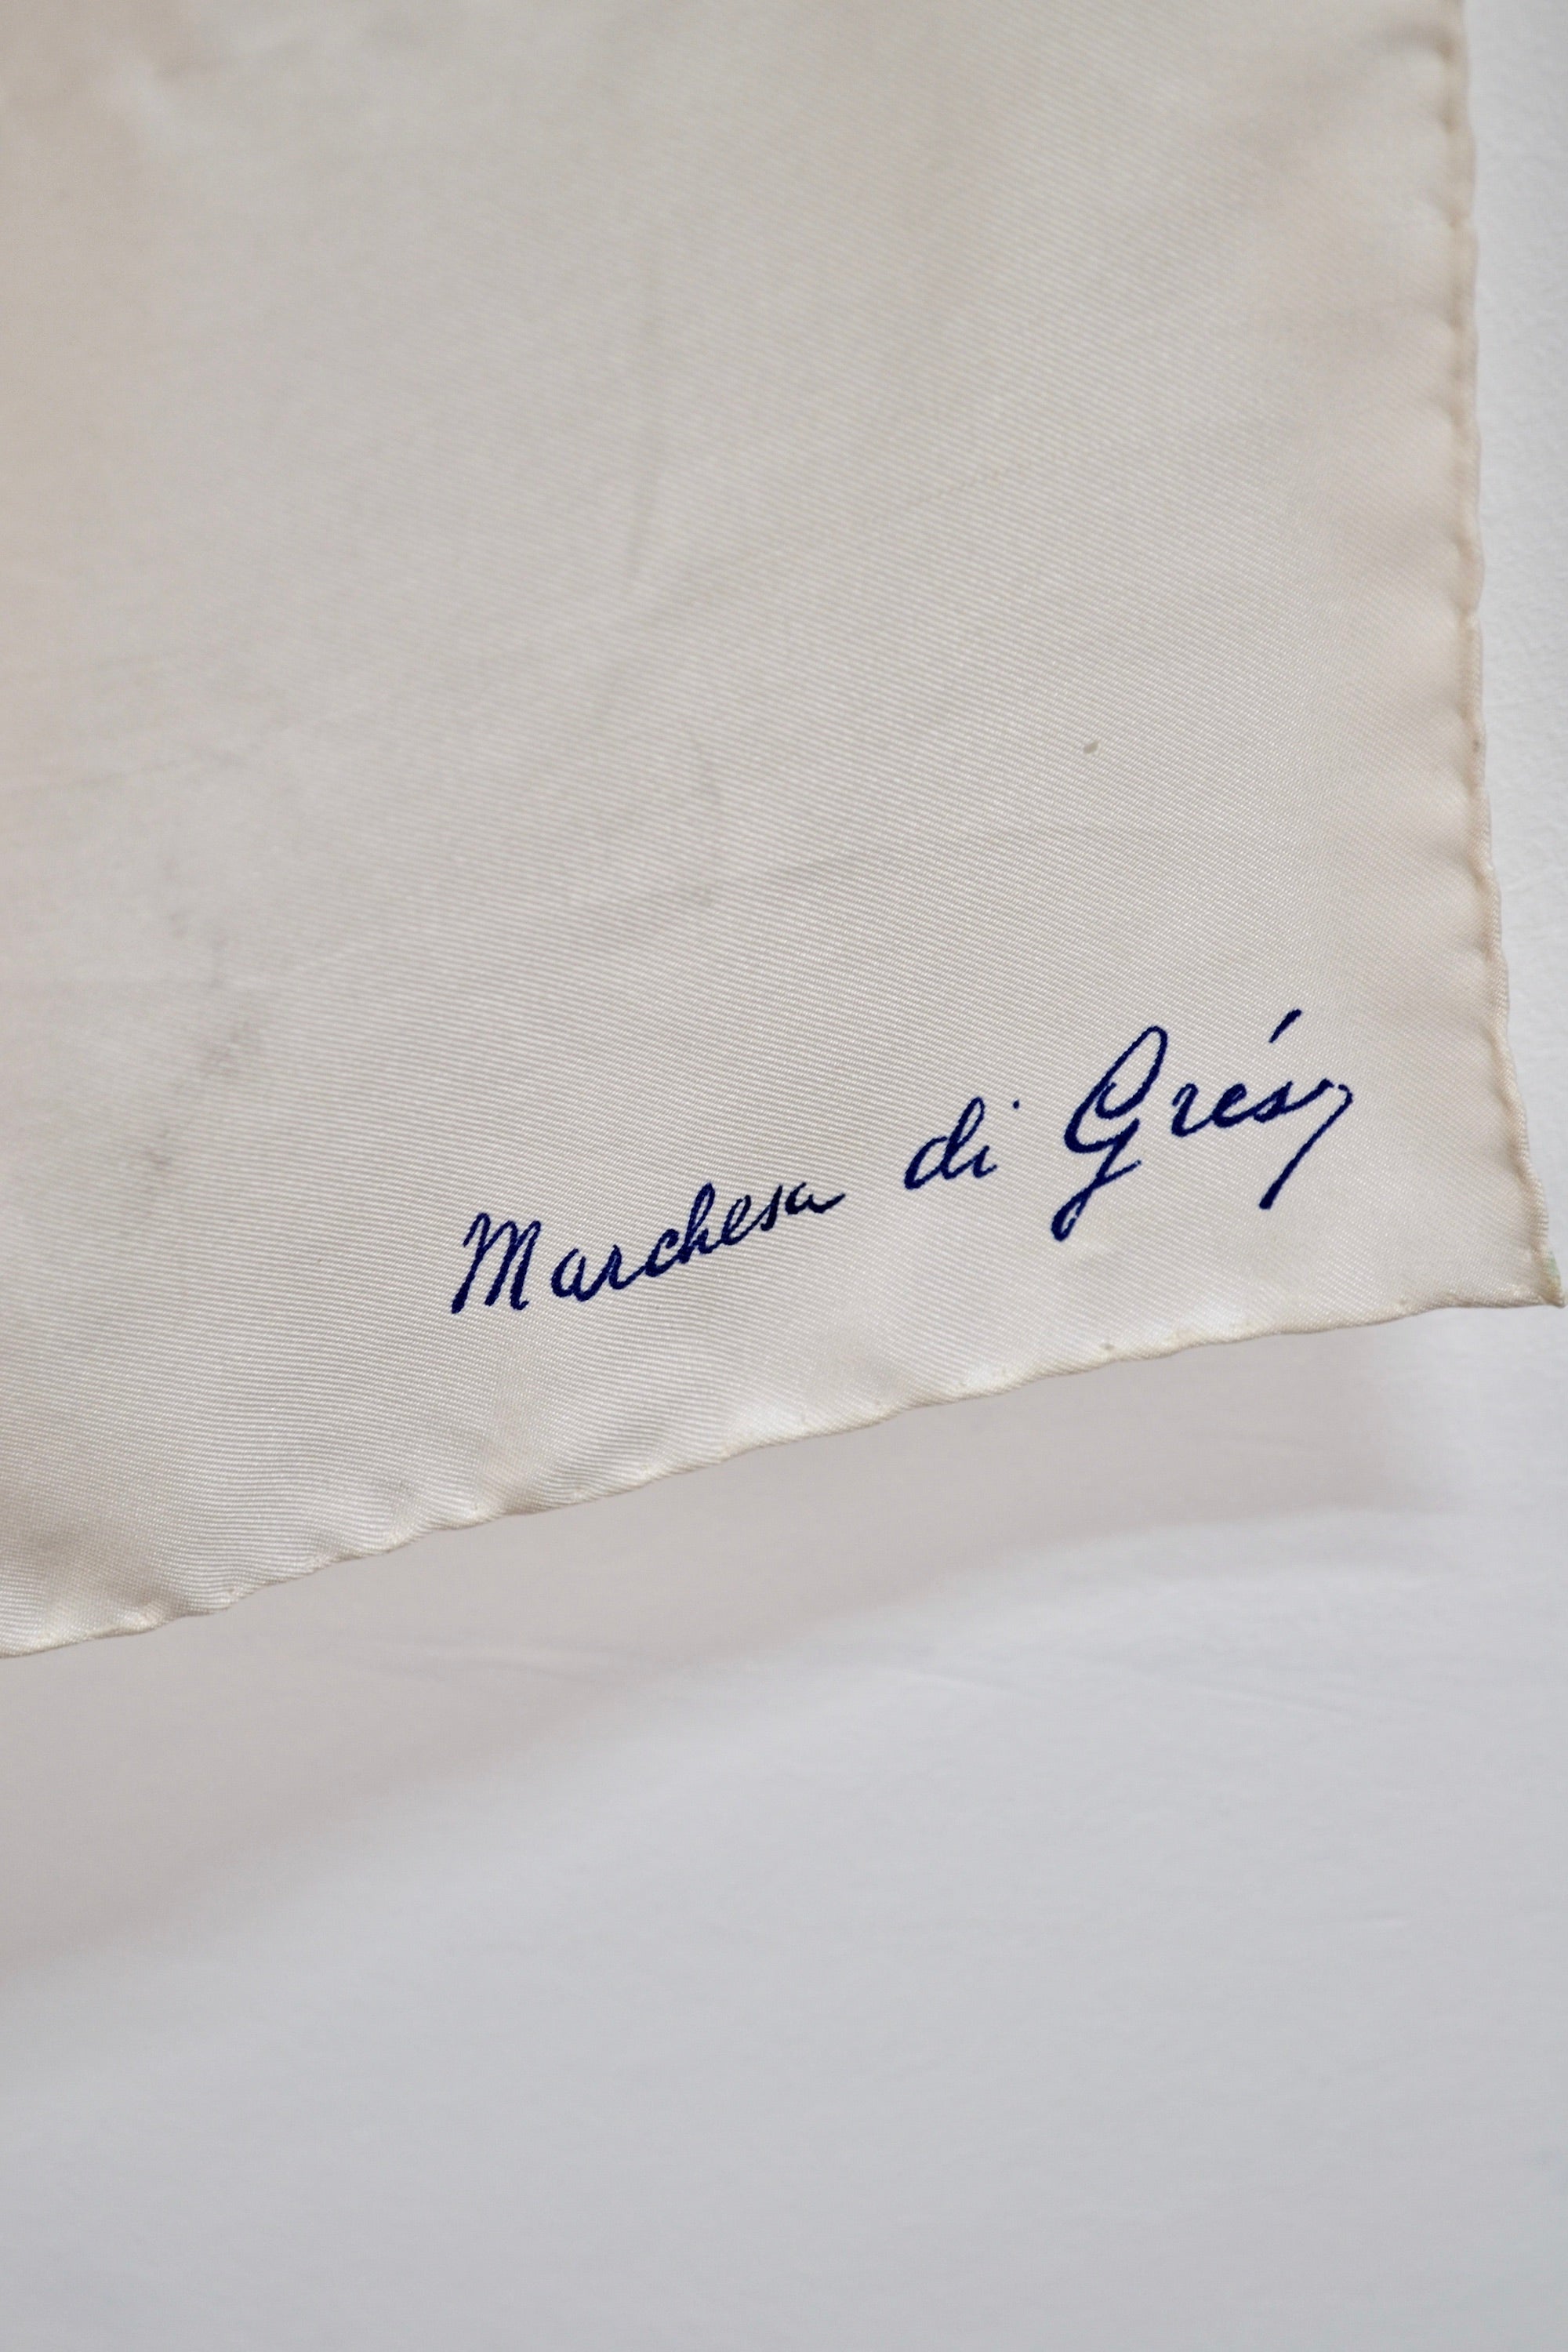 Marchesa di Grésy